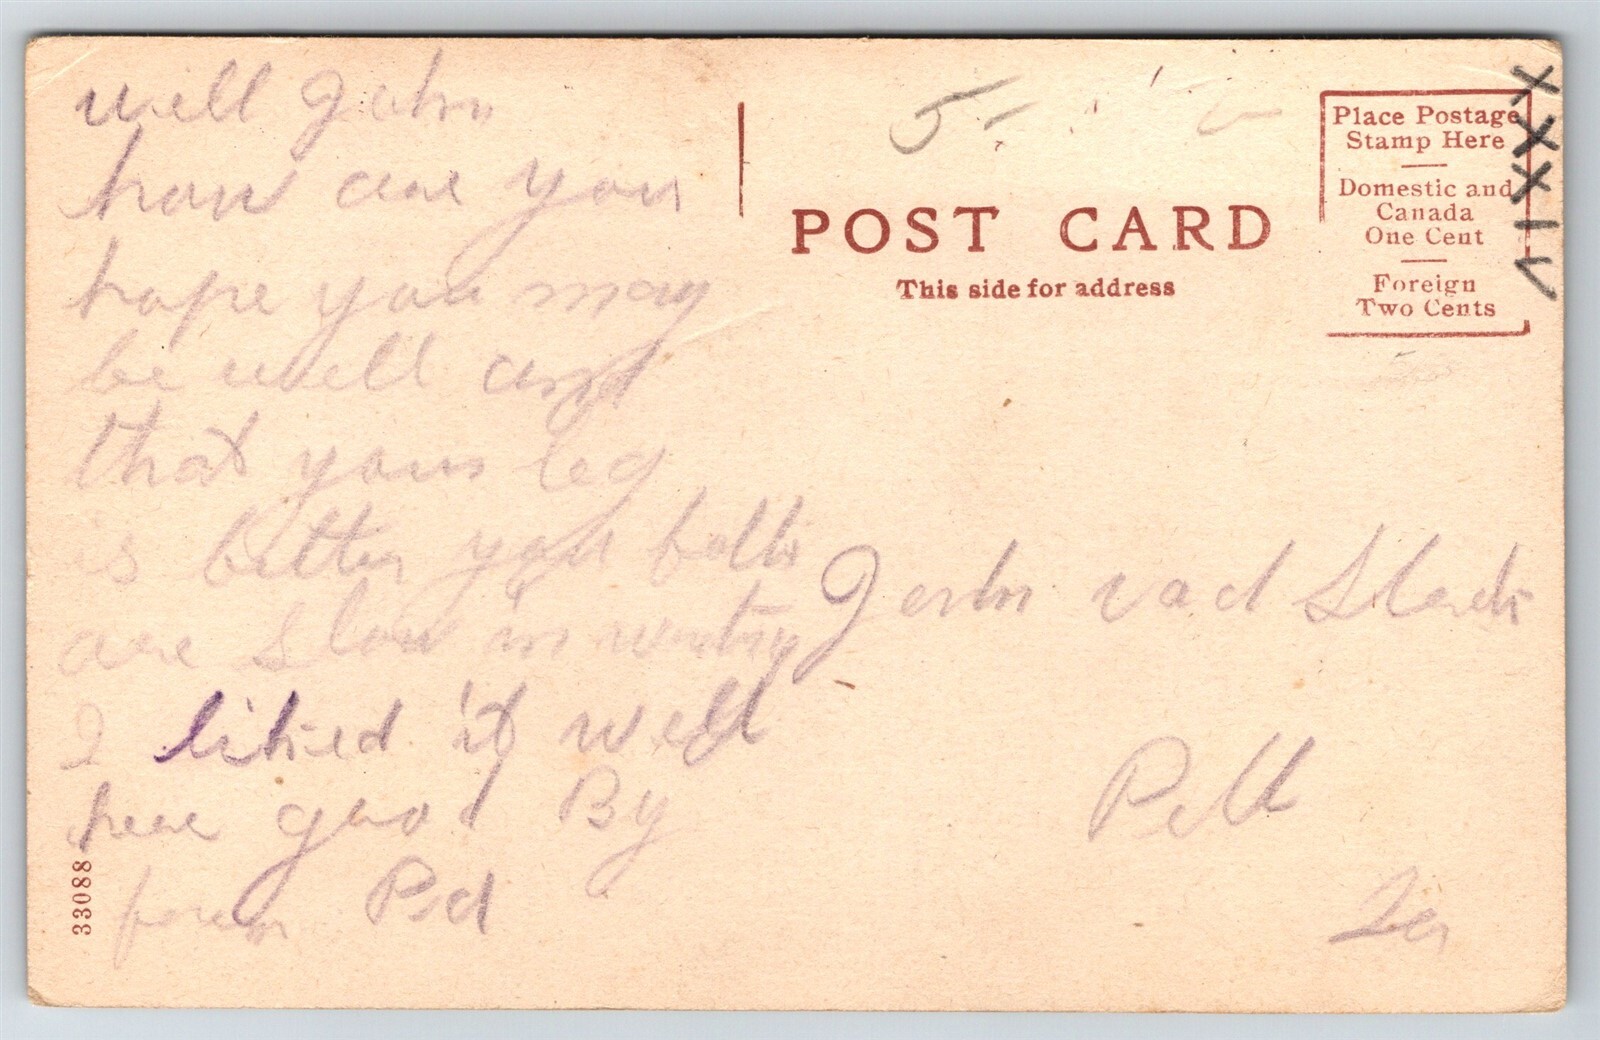 well John
how are you
hope you may
be well and
that your leg
is better you folks
are slow in writing
I liked it well
here good By
from
33088
5-
POST CARD
This side for address
Place Postage
Stamp Here
Domestic and
Canada
One Cent
Foreign
Two Cents
XXXIV
John
Pell